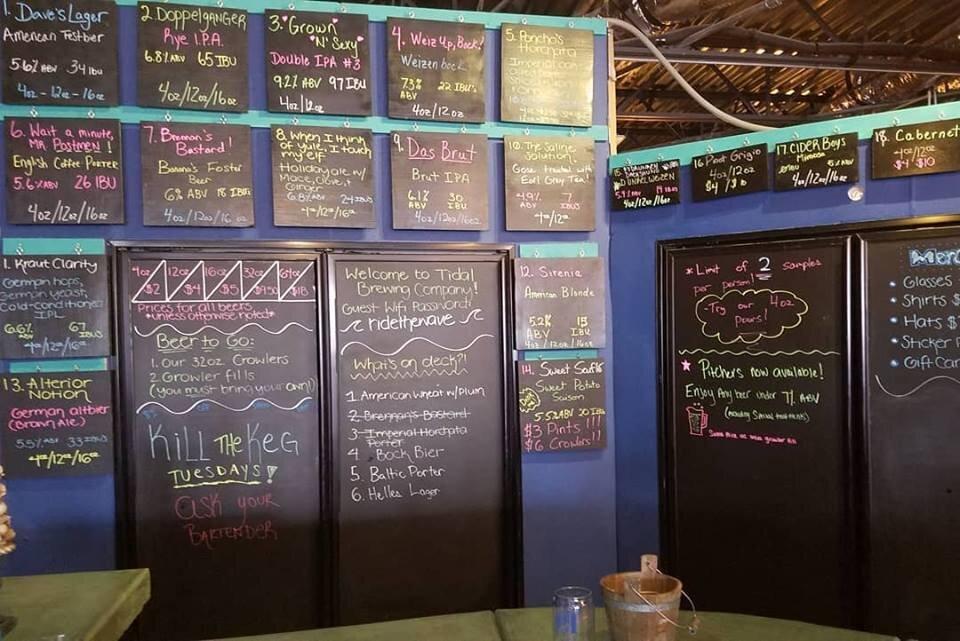 1. Dave's Lager
American Festbier
5.6% ABV 34 IBU
4oz - 12oz - 16oz
2. Doppelganger
Rye I.P.A.
6.8% ABV 65 IBU
4oz/12oz/16oz
3. Grown
'N' Sexy
Double IPA #3
9.2% ABV 97 IBU
4oz/12oz
4. Weiz Up, Bock!
Weizenbock
7.3% ABV 22 IBU's
4oz/12oz
5. Poncho's
Horchata
Imperial
6. Wait a minute,
MR POSTMEN!
English Coffee Porter
5.6% ABV 26 IBU
4oz/12oz/16oz
7. Brennan's
Bastard!
Banana's Foster
Beer
6% ABV 18 IBU's
4oz/12oz/16oz
8. When I think
of yule, I touch
my elf
Holiday ale w/
Mace, Clove, &
Ginger
6.8% ABV 24 IBU's
4oz/12oz/16oz
9. Das Brut
Brut IPA
6.1% ABV 30 IBU
4oz/12oz/16oz
10. The Saline
Solution!
Gose treated with
Earl Grey Tea!
4.9% ABV 7 IBU
4oz/12oz
1. Kraut Clarity
German hops,
German yeast,
Cold-conditioned
IPL
6.6% 67 IBU's
4oz/12oz/16oz
13. Alterior
Notion
German altbier
(Brown Ale)
5.5% ABV 33 IBU's
4oz/12oz/16oz
4oz 12oz 16oz 32oz 64oz
$2 $4 $5 $9.50 $18
Prices for all beers
*unless otherwise noted*
Beer to Go:
1. our 32oz Crowlers
2. Growler fills
(you must bring your own!)
Kill THE Keg
TUESDAYS!
ASK YOUR
BARTENDER
Welcome to Tidal
Brewing Company!
Guest Wifi Password:
ridethenave
What's on deck?!
1. American wheat w/plum
2. Brennan's Bastard
3. Imperial Horchata
Porter
4. Bock Bier
5. Baltic Porter
6. Helles Lager
12. Sirenia
American Blonde
5.2% ABV 15 IBU
4oz/12oz/16oz
14. Sweet Soufflé
Sweet Potato
Saison
5.5% ABV 30 IBU
$3 Pints!!!
$6 Crowlers!!
15
DUNKELWEIZEN
4oz/12oz/16oz
16 Pinot Grigio
4oz/12oz
17. CIDER BOYS
Mimosa
4oz/12oz/16oz
18. Cabernet
4oz/12oz
$4 $10
* Limit of 2 samples
per person!
-Try our 4oz
Pours!
Pitchers now available!
Enjoy Any beer under 7% ABV
Merc
• Glasses
• Shirts $
• Hats $
• Sticker
• Gift Car